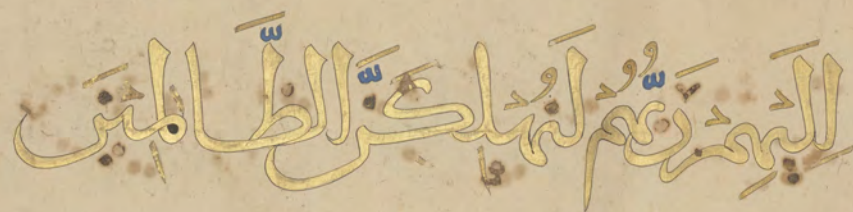 إِلَيْهِمْ رَبُّهُمْ لَنُهْلِكَنَّ الظَّالِمِينَ